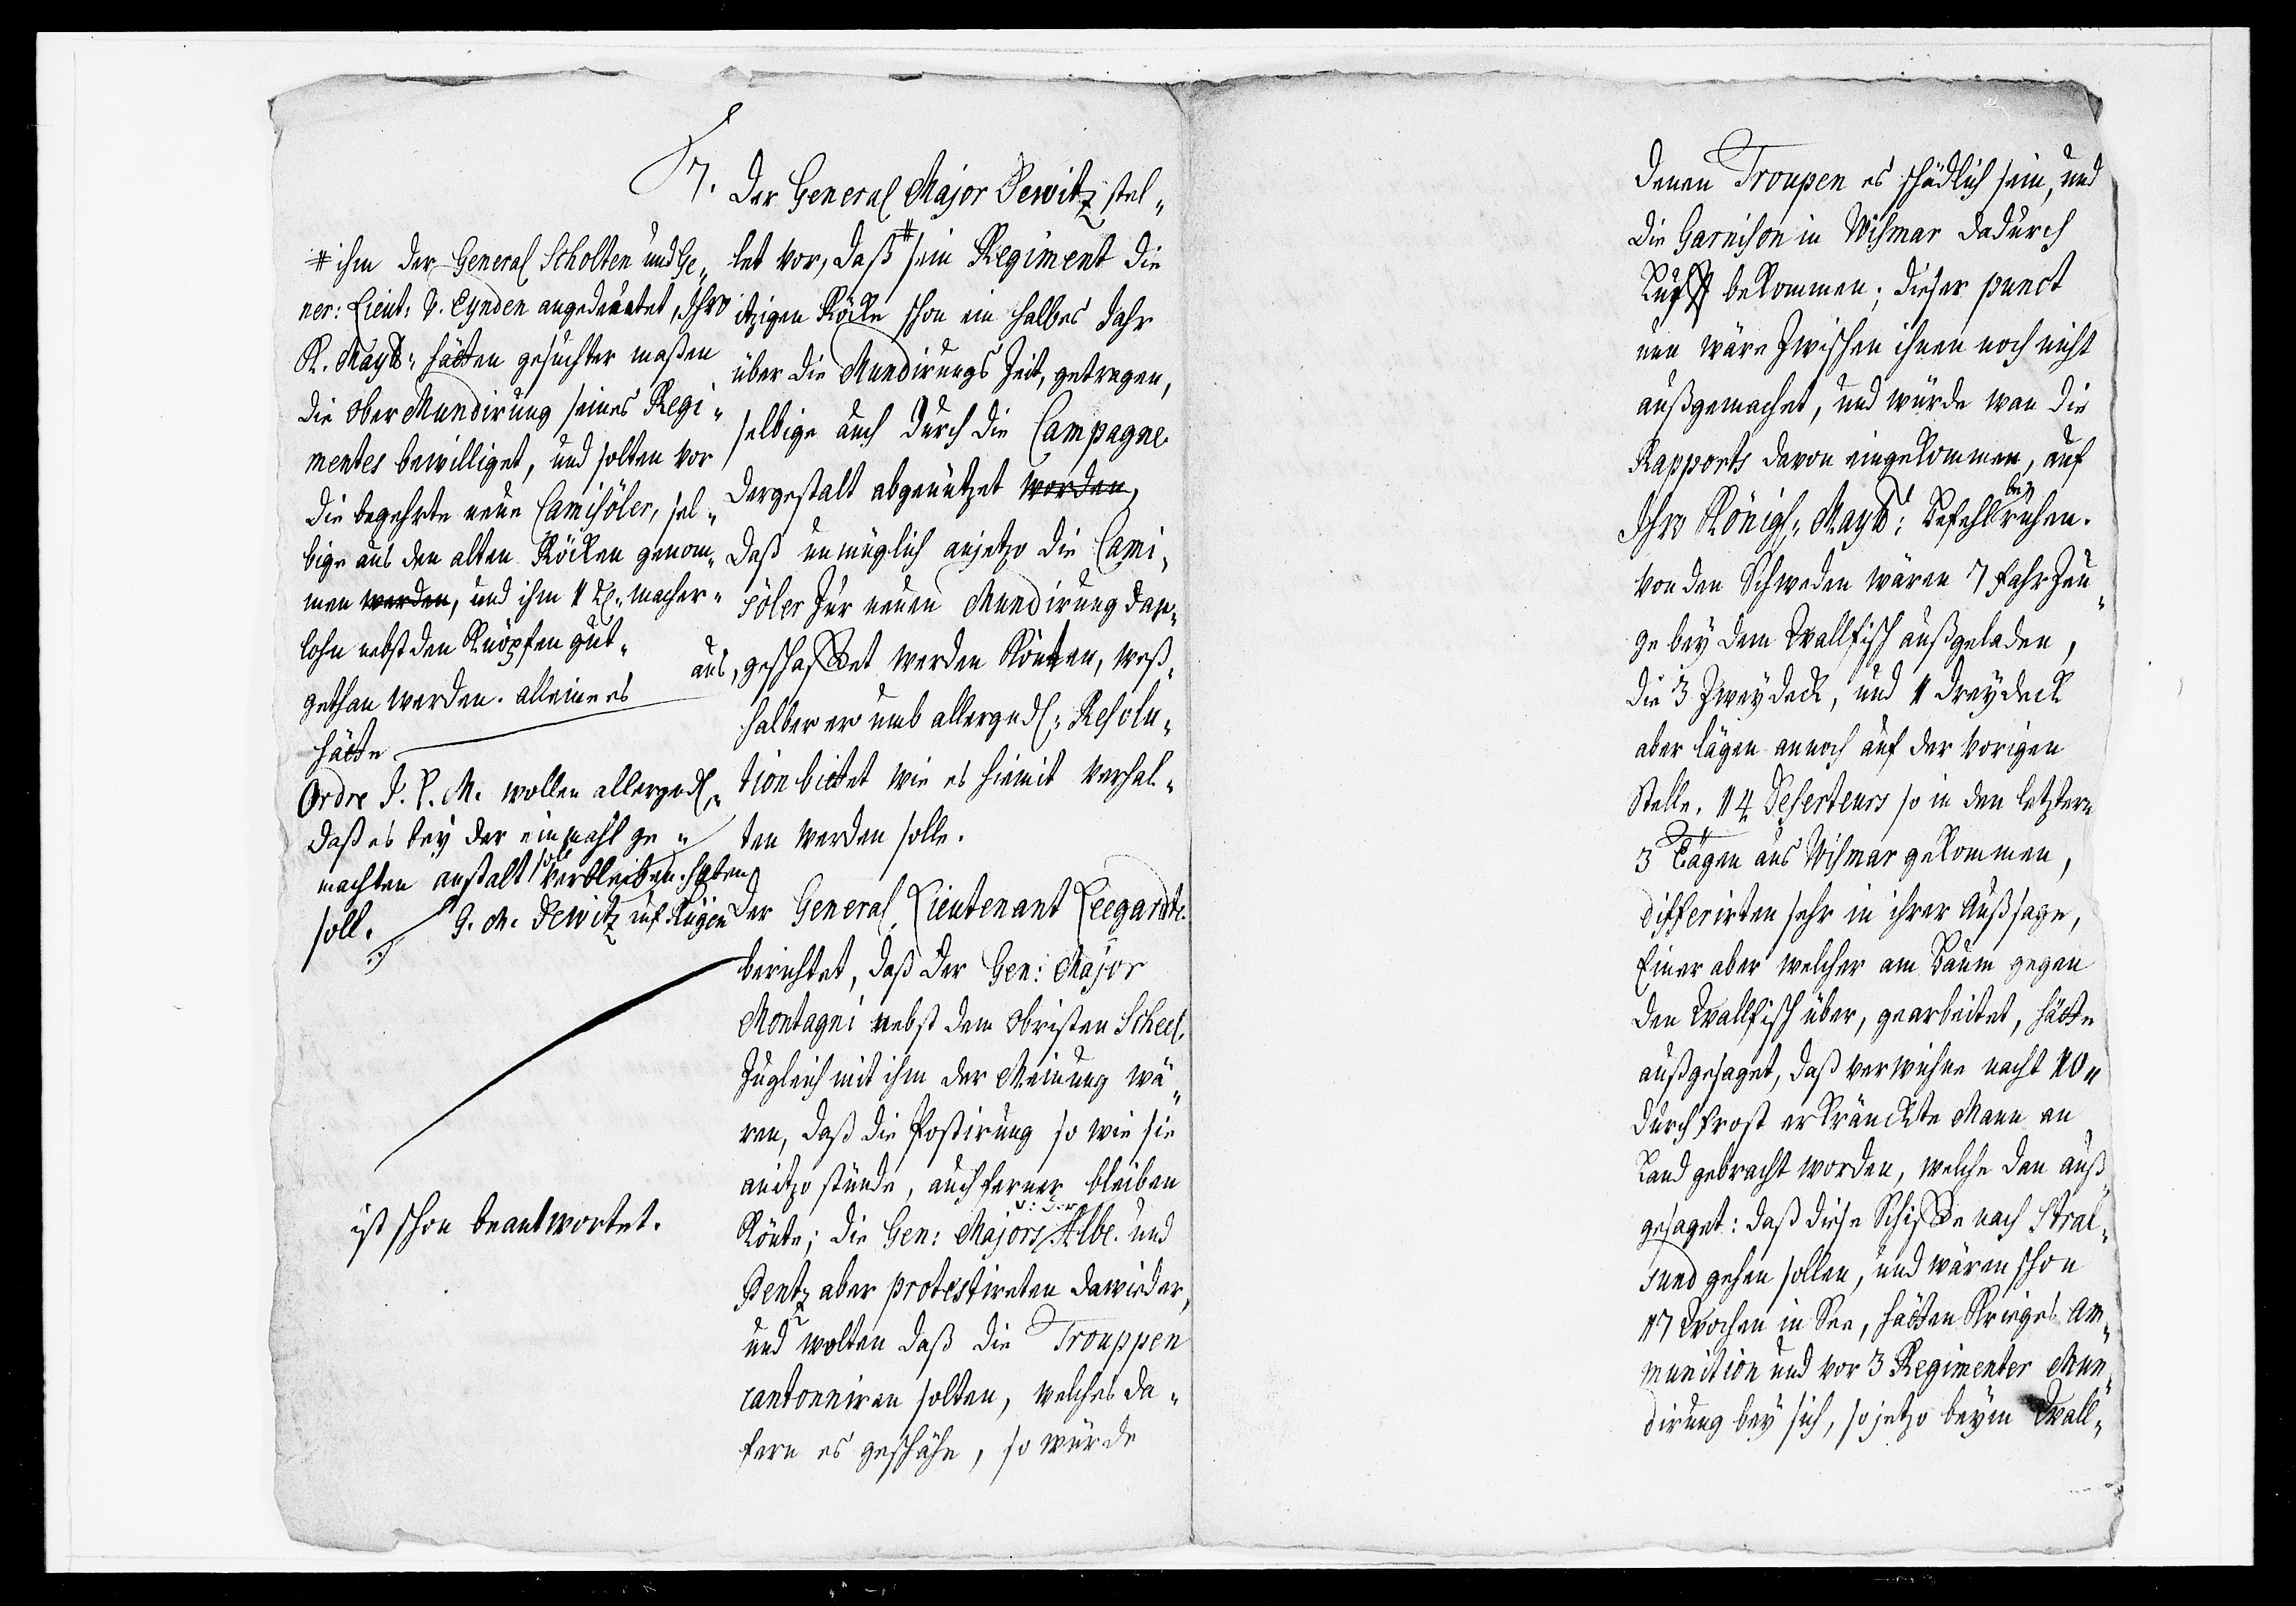 7. Der General Major Dewitz stel„
let vor, daß # sein Regiment die
itzigen Röcke schon ein halbes Jahr
über die Mundirungs Zeit, getragen,
selbige auch durch die Campagne
dergestalt abgenützet worden,
daß unmüglich anjetzo die Cami„
söler zur neuen Mundirung dar„
aus, geschaffet werden könten, weß„
halber er umb allergndl: Resolu„
tion bittet wie es hiemit verhal„
ten werden solle.
# ihm der General Scholten und Ge„
ner: Lieut: v. Eynden angedeutet, Ihro
K. Maytt: hätten gesuchter maßen
die ober Mundirung seines Regi„
mentes bewilliget, und solten vor
die begehrte neue Camisöler, sel„
bige aus den alten Röcken genom„
men werden, und ihm 1 macher„
lohn nebst den Knöpfen gut„
gethan werden. alleine es
hätte
Ordre I. K. M. wollen allergndl„
daß es bey der einmahl ge„
machten anstalt soll verbleiben. haben
soll. G. M. Dewitz auf Rügen
Der General Lieutenant Leegardt
berichtet, daß der Gen: Major
Montagni nebst dem Obristen Scheel.
zugleich mit ihm der Meinung wä„
ren, daß die Postirung so wie sie
anitzo stünde, auch ferner bleiben
könte; die Gen: Majors v: der Albe. und
Pentz aber protestireten dawieder,
und wolten daß die Trouppen
cantonniren solten, welches da„
fern es geschähe, so würde
ist schon beantwortet.
denen Troupen es schädlich sein, und
die Garnison in Wismar dadurch
Lufft bekommen; dieser punct
nun wäre zwischen ihnen noch nicht
außgemachet, und würde wan die
Rapports davon eingekommen, auf
Ihro Königl: Maytt: Befehl beruhen.
von den Schweden wären 7 Fahrzeu„
ge bey dem Wallfisch außgeladen,
die 3 Zweydeck, und 1 dreydeck
aber lägen annoch auf der vorigen
Stelle. 14 Deserteurs so in den letztern
3 Tägen aus Wismar gekommen,
differirten sehr in ihrer Außsage,
Einer aber welcher am Baum gegen
den Wallfisch über, gearbeitet, hätte
außgesaget, daß verwichne nacht 10„
durch Frost erkränckte Mann an
Land gebracht worden, welche dan auß„
gesaget: daß diese Schiffe nach Stral„
sund gehen sollen, und wären schon
17 Wochen in See, hätten Krieges Am„
munition und vor 3 Regimenter Mun„
dirung bey sich, so jetzo beym Wall„